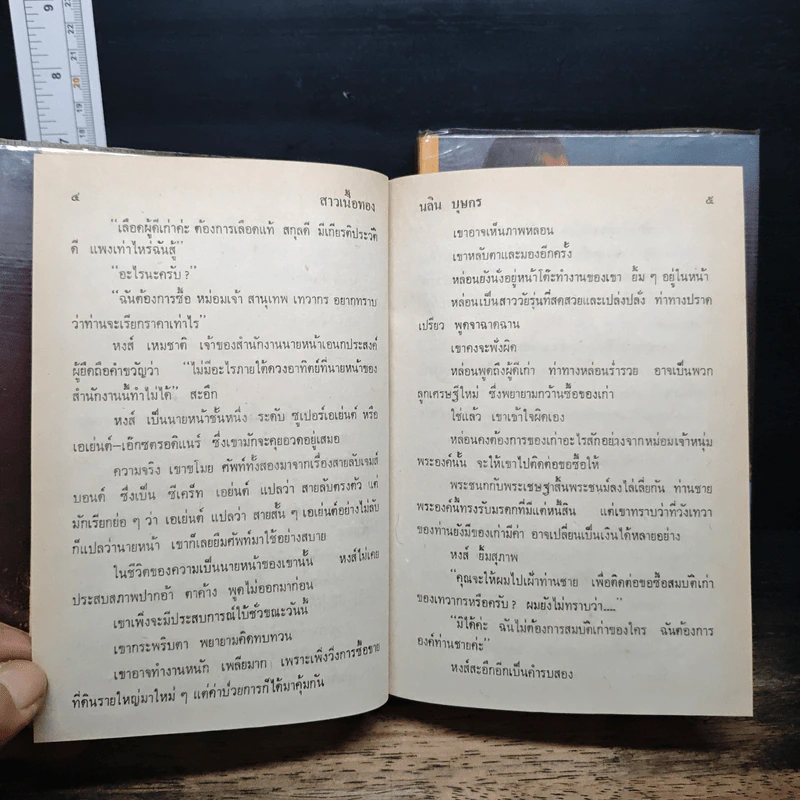 ๔ สาวเนื้อทอง
“เลือดผู้ดีเก่าค่ะ ต้องการเลือดแท้ สกุลดี มีเกียรติประวัติ
ดี แพงเท่าไหร่ฉันสู้”
“อะไรนะครับ ?”
“ฉันต้องการซื้อ หม่อมเจ้า สานุเทพ เทวากร อยากทราบ
ว่าท่านจะเรียกราคาเท่าไร”
หงส์ เหมชาติ เจ้าของสำนักงานนายหน้าเอนกประสงค์
ผู้ยึดถือคำขวัญว่า “ไม่มีอะไรภายใต้ดวงอาทิตย์ที่นายหน้าของ
สำนักงานนี้ทำไม่ได้” สะอึก
หงส์ เป็นนายหน้าชั้นหนึ่ง ระดับ ซูเปอร์เอเย่นต์ หรือ
เอเย่นต์–เอ๊กซตรอดิแนร์ ซึ่งเขามักจะคุยอวดอยู่เสมอ
ความจริง เขาขโมย ศัพท์ทั้งสองมาจากเรื่องสายลับเจมส์
บอนด์ ซึ่งเป็น ซีเคร็ท เอเย่นต์ แปลว่า สายลับตรงตัว แต่
มักเรียกย่อ ๆ ว่า เอเย่นต์ แปลว่า สายสั้น ๆ เอเย่นต์อย่างไม่ลับ
ก็แปลว่านายหน้า เขาก็เลยยืมศัพท์มาใช้อย่างสบาย
ในชีวิตของความเป็นนายหน้าของเขานั้น หงส์ไม่เคย
ประสบสภาพปากอ้า ตาค้าง พูดไม่ออกมาก่อน
เขาเพิ่งจะมีประสบการณ์ใบ้ชั่วขณะวันนี้
เขากระพริบตา พยายามคิดทบทวน
เขาอาจทำงานหนัก เพลียมาก เพราะเพิ่งวิ่งการซื้อขาย
ที่ดินรายใหญ่มาใหม่ ๆ แต่ค่าป่วยการก็ได้มาคุ้มกัน
นลิน บุษกร ๕
เขาอาจเห็นภาพหลอน
เขาหลับตาและมองอีกครั้ง
หล่อนยังนั่งอยู่หน้าโต๊ะทำงานของเขา ยิ้ม ๆ อยู่ในหน้า
หล่อนเป็นสาววัยรุ่นที่สดสวยและเปล่งปลั่ง ท่าทางปราด
เปรียว พูดจาฉาดฉาน
เขาคงจะฟังผิด
หล่อนพูดถึงผู้ดีเก่า ท่าทางหล่อนร่ำรวย อาจเป็นพวก
ลูกเศรษฐีใหม่ ซึ่งพยายามกว้านซื้อของเก่า
ใช่แล้ว เขาเข้าใจผิดเอง
หล่อนคงต้องการของเก่าอะไรสักอย่างจากหม่อมเจ้าหนุ่ม
พระองค์นั้น จะให้เขาไปติดต่อขอซื้อให้
พระชนกกับพระเชษฐาสิ้นพระชนม์ลงไล่เลี่ยกัน ท่านชาย
พระองค์นี้ทรงรับมรดกที่มีแต่หนี้สิน แต่เขาทราบว่าที่วังเทวา
ของท่านยังมีของเก่ามีค่า อาจเปลี่ยนเป็นเงินได้หลายอย่าง
หงส์ ยิ้มสุภาพ
“คุณจะให้ผมไปเฝ้าท่านชาย เพื่อติดต่อขอซื้อสมบัติเก่า
ของเทวากรหรือครับ ? ผมยังไม่ทราบว่า.....”
“มิได้ค่ะ ฉันไม่ต้องการสมบัติเก่าของใคร ฉันต้องการ
องค์ท่านชายค่ะ”
หงส์สะอึกอีกเป็นคำรบสอง
7
8
9
18
19
20
21
22
23